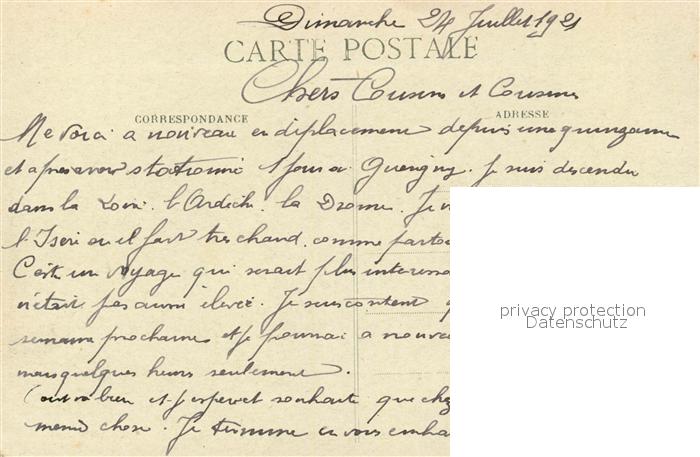 Dimanche 24 Juillet 1921
CARTE POSTALE
Chers Cousins et Cousines
CORRESPONDANCE
ADRESSE
Me voici a nouveau en déplacement depuis une quinzaine
et apres avoir stationné 1 jour a Guerigny. Je suis descendu
dans la Loire. l'Ardèche. la Drome. Je
l'Isère ou il fait tres chaud. comme
C'est un voyage qui serait plus
n'était pas aussi élevée. Je suis content
semaine prochaine et je pourrai a
mais quelques heures seulement.
Tout va bien et j'espère et souhaite que
meme chose. Je termine en vous
privacy protection
Datenschutz